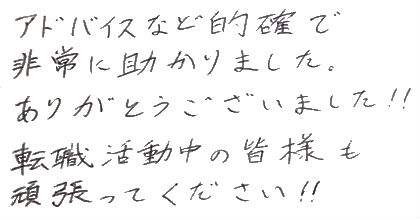 アドバイスなど的確で
非常に助かりました。
ありがとうございました!!
転職活動中の皆様も
頑張ってください!!